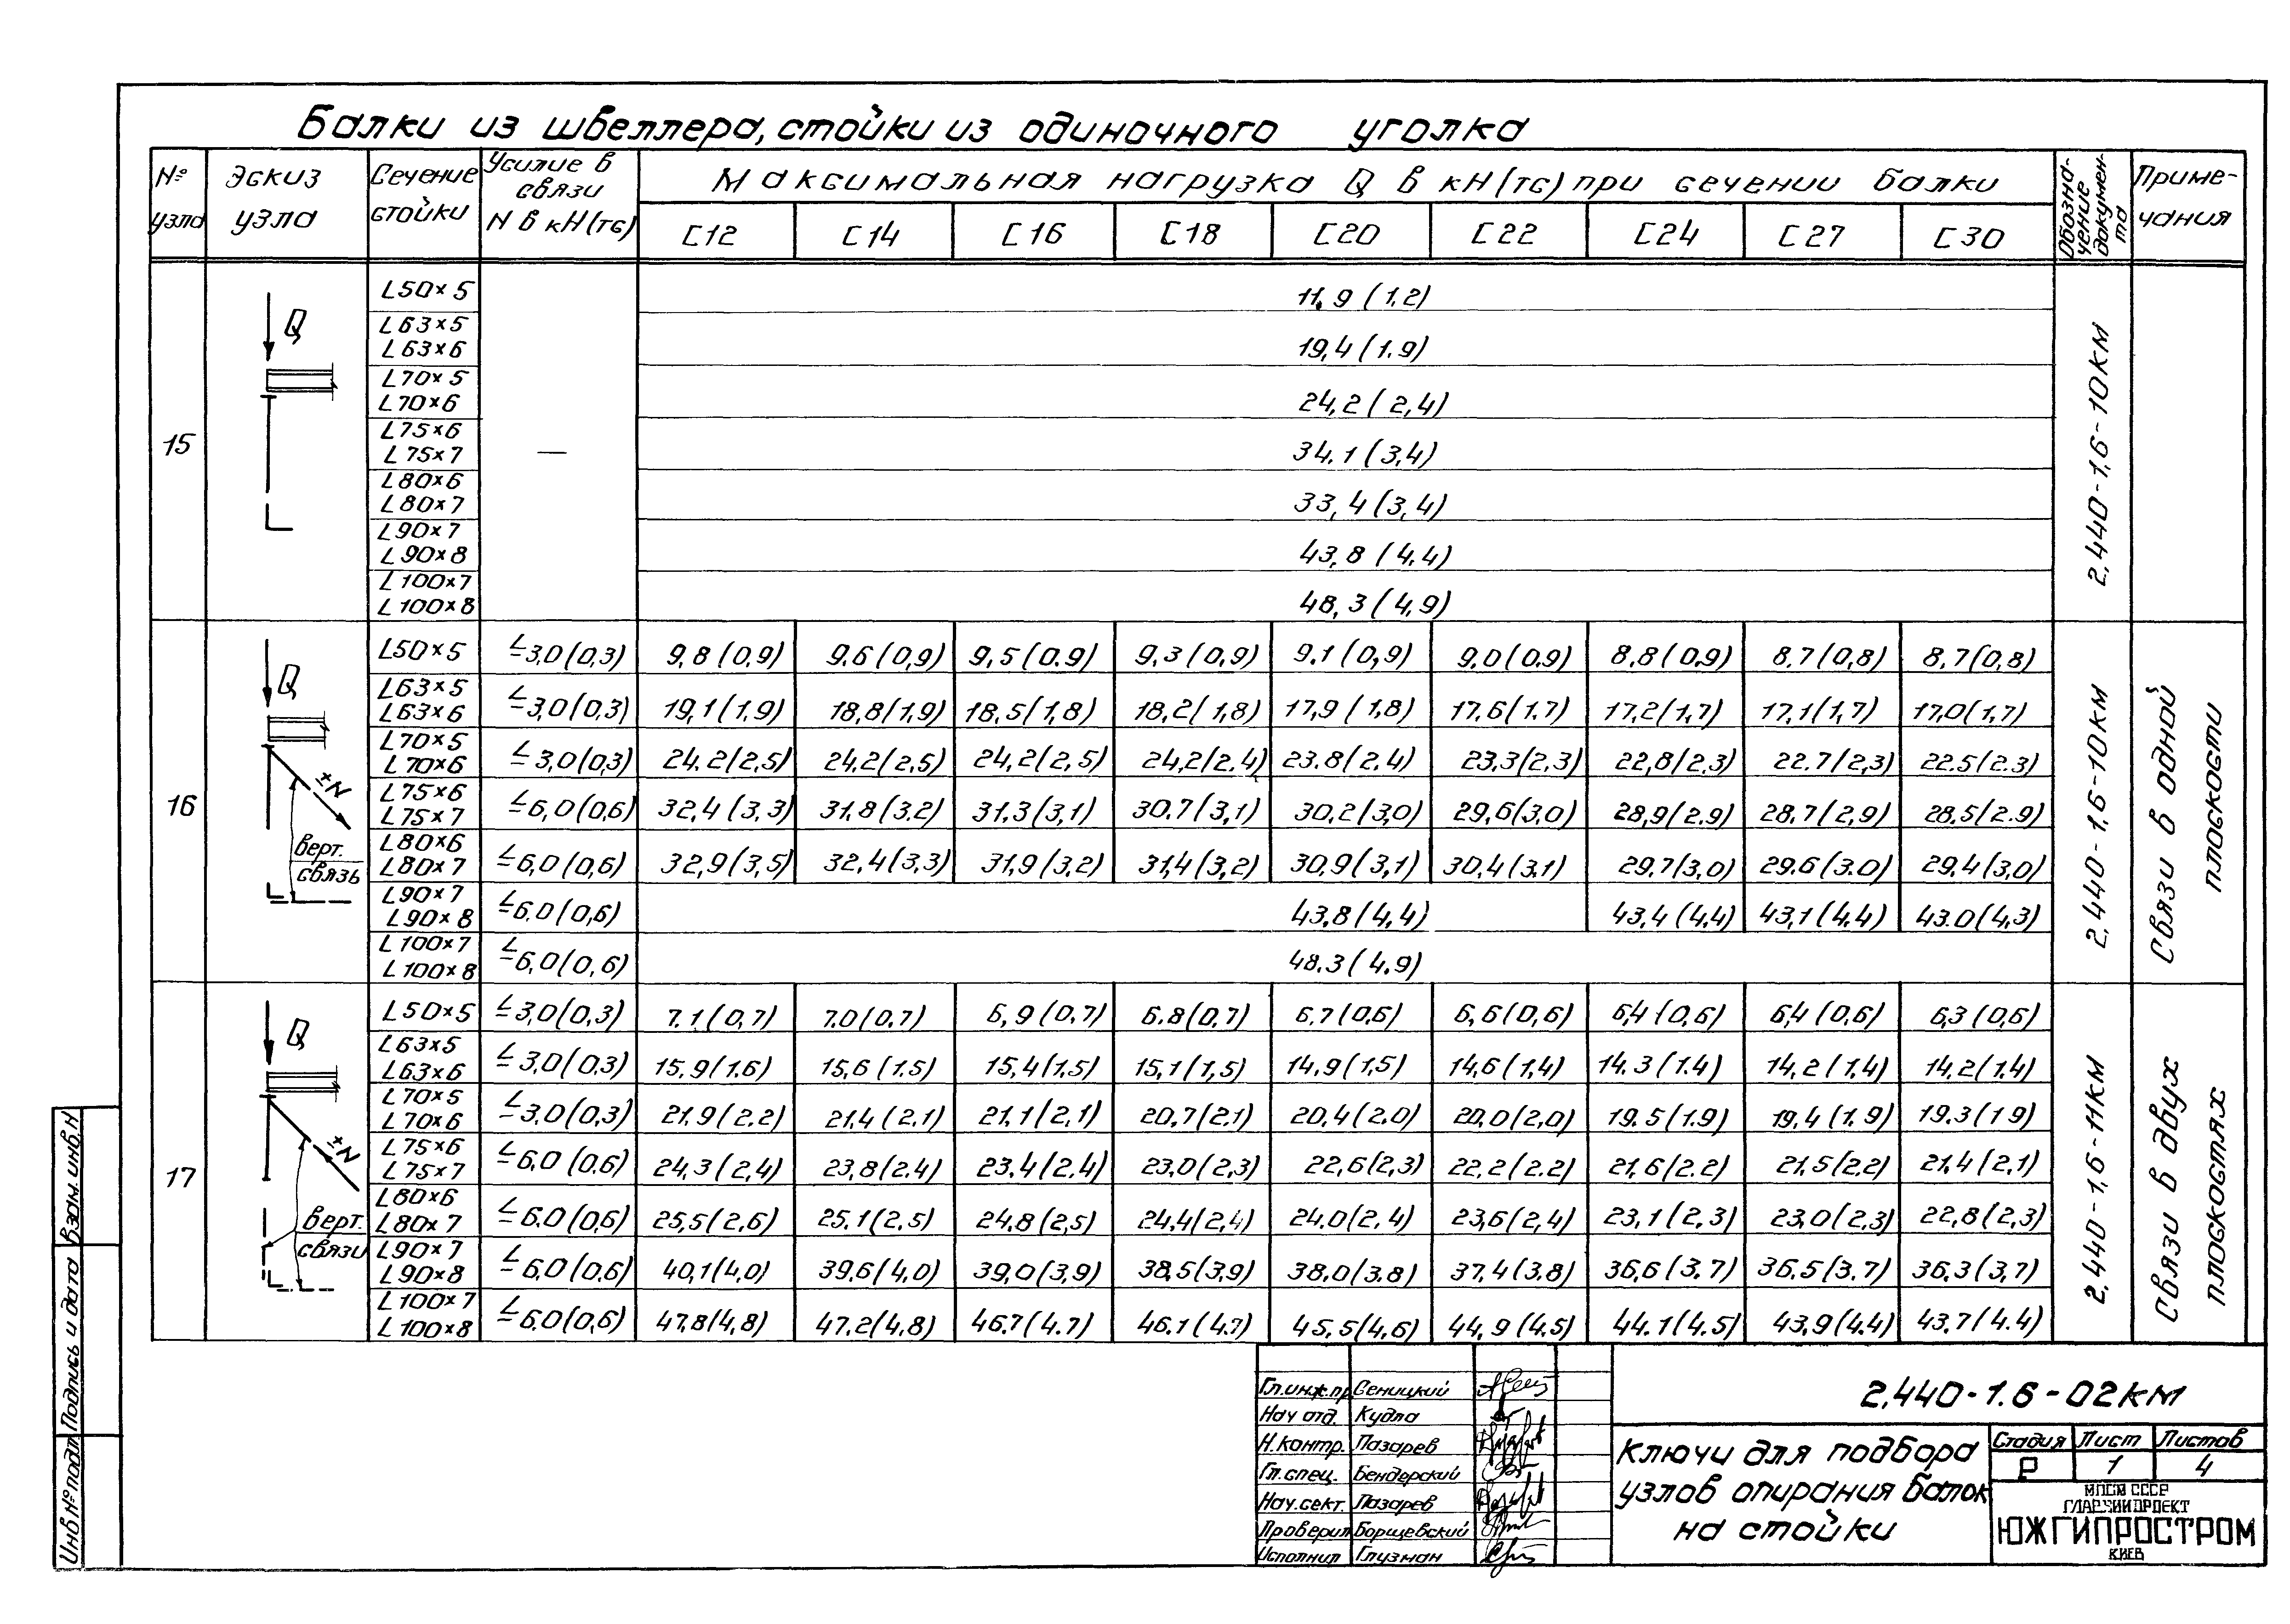 Балки из швеллера, стойки из одиночного уголка
№ узла | Эскиз узла | Сечение стойки | Усилие в связи N в кН(тс) | Максимальная нагрузка Q в кН(тс) при сечении балки | Обозначение документа | Примечания
[12 | [14 | [16 | [18 | [20 | [22 | [24 | [27 | [30
15
Q
L50×5 | — | 11,9 (1,2)
L63×5 L63×6 | 19,4 (1.9)
L70×5 L70×6 | 24,2 (2,4)
L75×6 L75×7 | 34.1 (3,4)
L80×6 L80×7 | 33,4 (3,4)
L90×7 L90×8 | 43,8 (4.4)
L100×7 L100×8 | 48,3 (4,9)
2,440-1,6-10КМ
16
Q
±N
верт. связь
L50×5 | ≤3,0(0,3) | 9,8(0,9) | 9,6(0,9) | 9,5(0.9) | 9,3(0,9) | 9.1(0,9) | 9,0(0.9) | 8,8(0.9) | 8.7(0,8) | 8,7(0,8)
L63×5 L63×6 | ≤3,0(0,3) | 19,1(1.9) | 18,8(1,9) | 18,5(1,8) | 18,2(1,8) | 17,9(1,8) | 17,6(1.7) | 17,2(1,7) | 17,1(1,7) | 17,0(1,7)
L70×5 L70×6 | ≤3,0(0,3) | 24.2(2,5) | 24,2(2,5) | 24,2(2,5) | 24,2(2.4) | 23.8(2,4) | 23.3(2,3) | 22,8(2.3) | 22.7(2,3) | 22.5(2.3)
L75×6 L75×7 | ≤6,0(0,6) | 32,4(3,3) | 31,8(3.2) | 31,3(3,1) | 30.7(3,1) | 30,2(3,0) | 29,6(3,0) | 28,9(2.9) | 28,7(2,9) | 28,5(2.9)
L80×6 L80×7 | ≤6,0(0,6) | 32,9(3,5) | 32,4(3,3) | 31,9(3,2) | 31,4(3,2) | 30,9(3,1) | 30,4(3.1) | 29.7(3,0) | 29.6(3.0) | 29,4(3,0)
L90×7 L90×8 | ≤6.0(0,6) | 43,8(4,4) | 43,4(4,4) | 43,1(4.4) | 43.0(4,3)
L100×7 L100×8 | ≤6,0(0,6) | 48.3(4.9)
2,440-1,6-10КМ
Связи в одной плоскости
17
Q
±N
верт. связи
L50×5 | ≤3,0(0,3) | 7.1(0,7) | 7.0(0.7) | 6,9(0.7) | 6.8(0,7) | 6,7(0,6) | 6,6(0,6) | 6,4(0,6) | 6,4(0,6) | 6,3(0,6)
L63×5 L63×6 | ≤3,0(0,3) | 15,9(1.6) | 15,6(1.5) | 15,4(1,5) | 15,1(1,5) | 14,9(1,5) | 14,6(1,4) | 14.3(1.4) | 14,2(1.4) | 14,2(1,4)
L70×5 L70×6 | ≤3,0(0,3) | 21,9(2.2) | 21,4(2.1) | 21,1(2,1) | 20,7(2.1) | 20,4(2.0) | 20,0(2,0) | 19.5(1.9) | 19,4(1.9) | 19.3(1 9)
L75×6 L75×7 | ≤6,0(0.6) | 24,3(2,4) | 23,8(2.4) | 23.4(2.4) | 23,0(2,3) | 22,6(2,3) | 22,2(2.2) | 21,6(2.2) | 21,5(2.2) | 21,4(2,1)
L80×6 L80×7 | ≤6.0(0,6) | 25,5(2,6) | 25,1(2,5) | 24,8(2,5) | 24,4(2,4) | 24.0(2,4) | 23,6(2,4) | 23,1(2,3) | 23,0(2,3) | 22,8(2,3)
L90×7 L90×8 | ≤6,0(0,6) | 40,1(4,0) | 39,6(4,0) | 39,0(3,9) | 38,5(3,9) | 38,0(3,8) | 37,4(3.8) | 36,6(3.7) | 36,5(3,7) | 36,3(3,7)
L100×7 L100×8 | ≤6,0(0,6) | 47,8(4,8) | 47.2(4,8) | 46.7(4.7) | 46.1(4.7) | 45.5(4,6) | 44,9(4,5) | 44.1(4.5) | 43,9(4.4) | 43,7(4.4)
2,440-1,6-11КМ
Связи в двух плоскостях
Взам. инв. N
Подпись и дата
Инв № подл.
Гл.инж.пр. Сеницкий
Нач отд. Кудла
Н.контр. Лазарев
Гл.спец. Бендерский
Нач.сект. Лазарев
Проверил Борщевский
Исполнил Глузман
2,440-1.6-02КМ
Ключи для подбора узлов опирания балок на стойки
Стадия Лист Листов
Р 1 4
МПСМ СССР
ГЛАВНИИПРОЕКТ
ЮЖГИПРОСТРОМ
КИЕВ